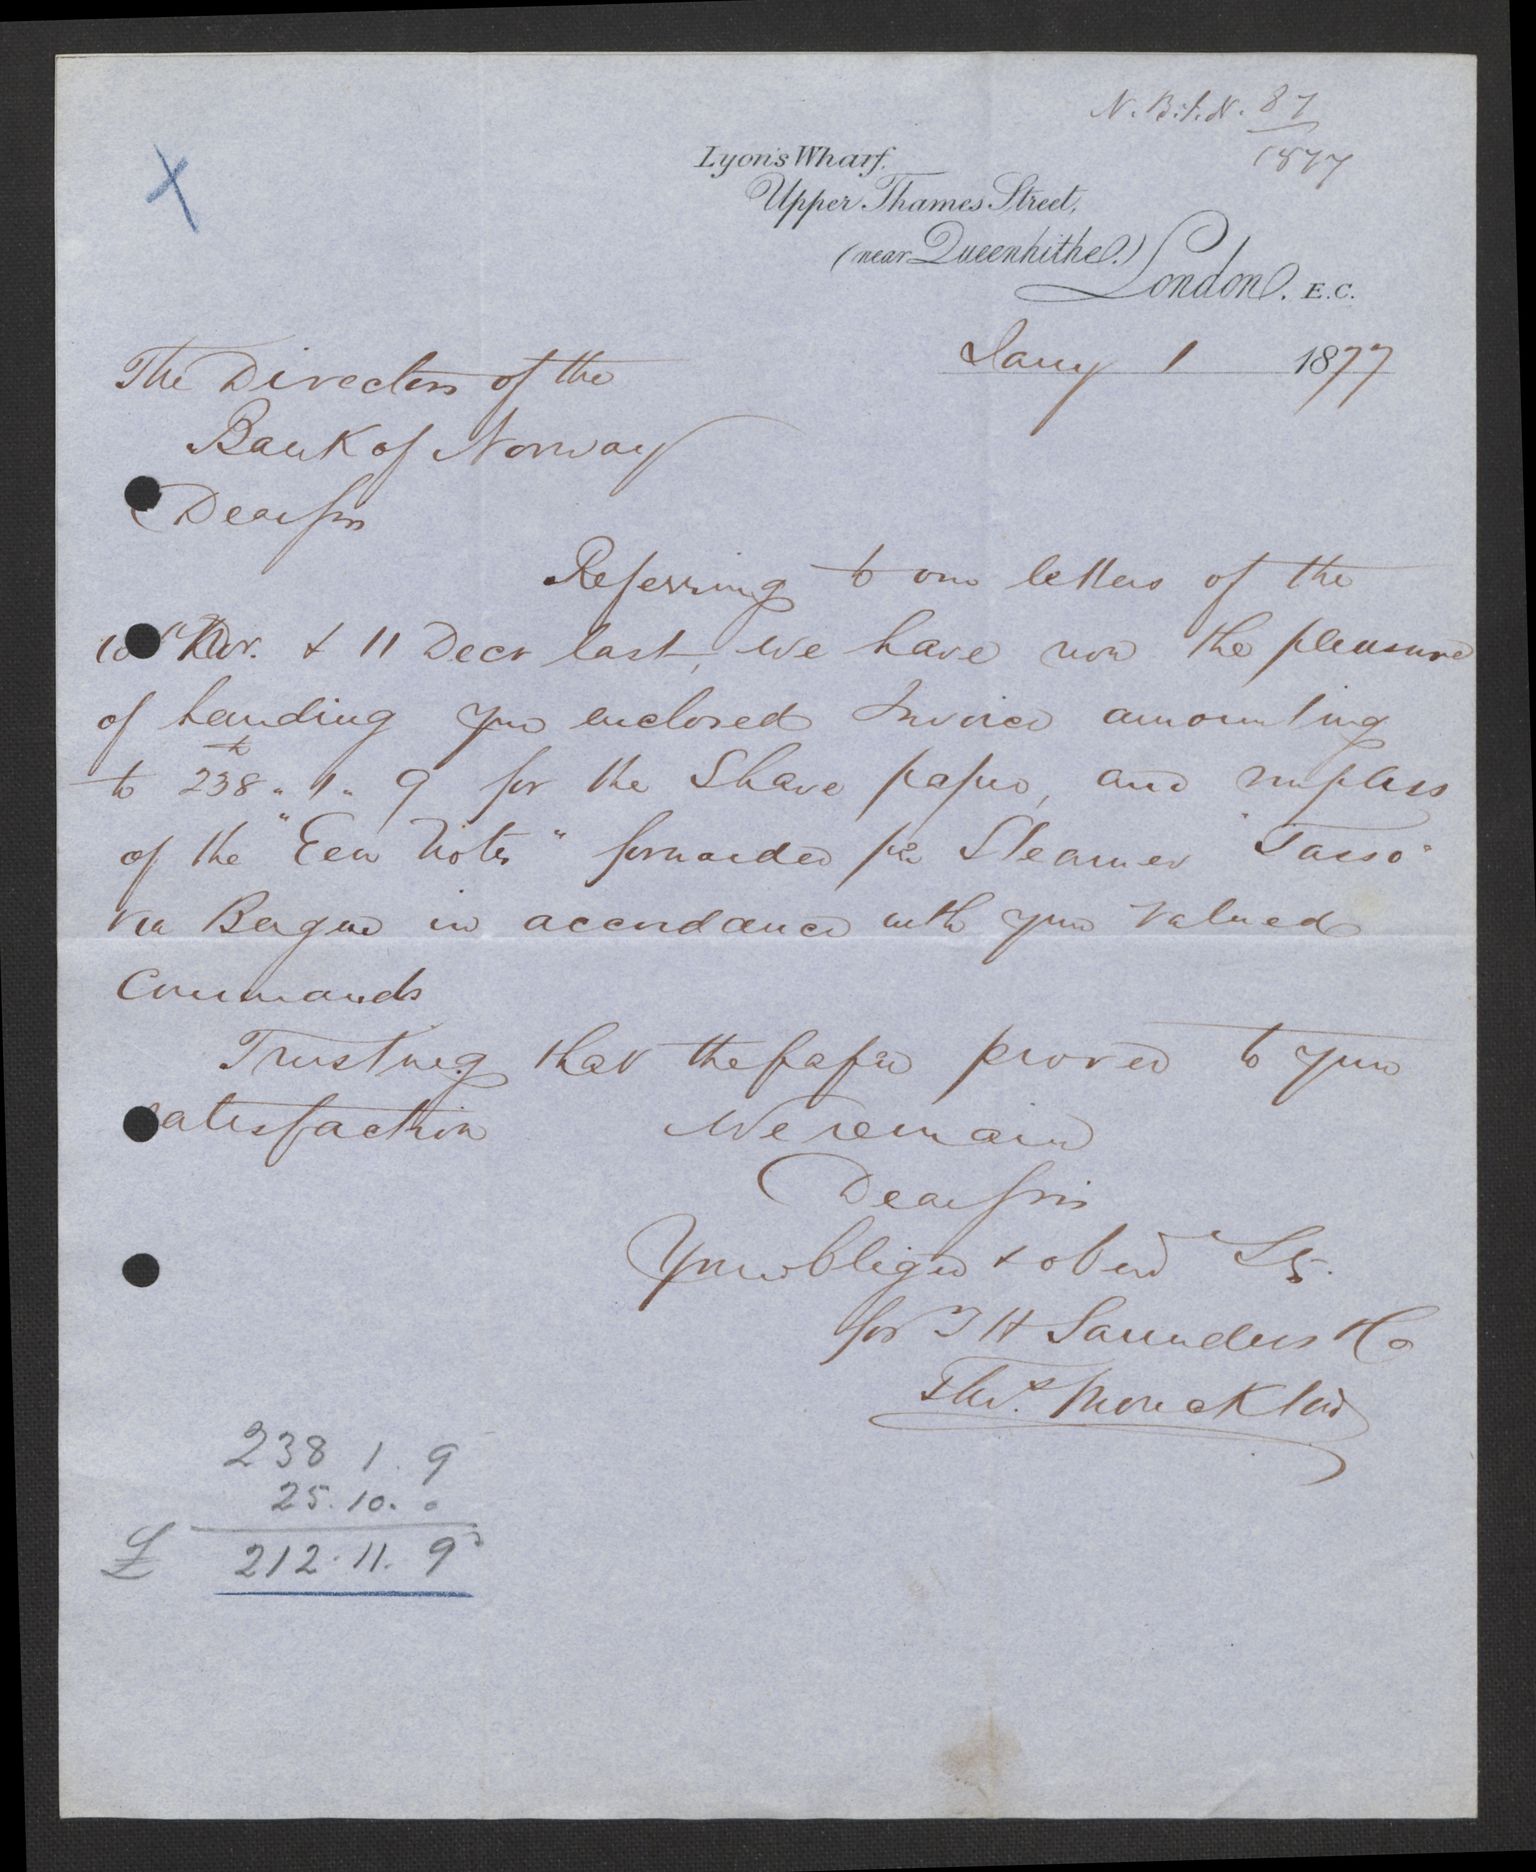 N. B. I. N. 87
1877
Lyon's Wharf,
Upper Thames Street,
(near Queenhithe.)
London. E.C.
Jany 1 1877
The Directors of the
Bank of Norway
Dear Sirs
Referring to our letters of the
Nov. & 11 Decr last, we have now the pleasure
of handing you enclosed Invoice amounting
to 238 " 1 " 9 for the Share paper, and surplus
of the "Een Notes" forwarded per Steamer "Tasso"
via Bergen in accordance with your valued
Commands
Trusting that the paper proves to your
satisfaction We remain
Dear Sirs
Your obliged & obed Sts.
for T H Saunders & Co
Thos.
238 1. 9
25. 10. 0
£ 212. 11. 9